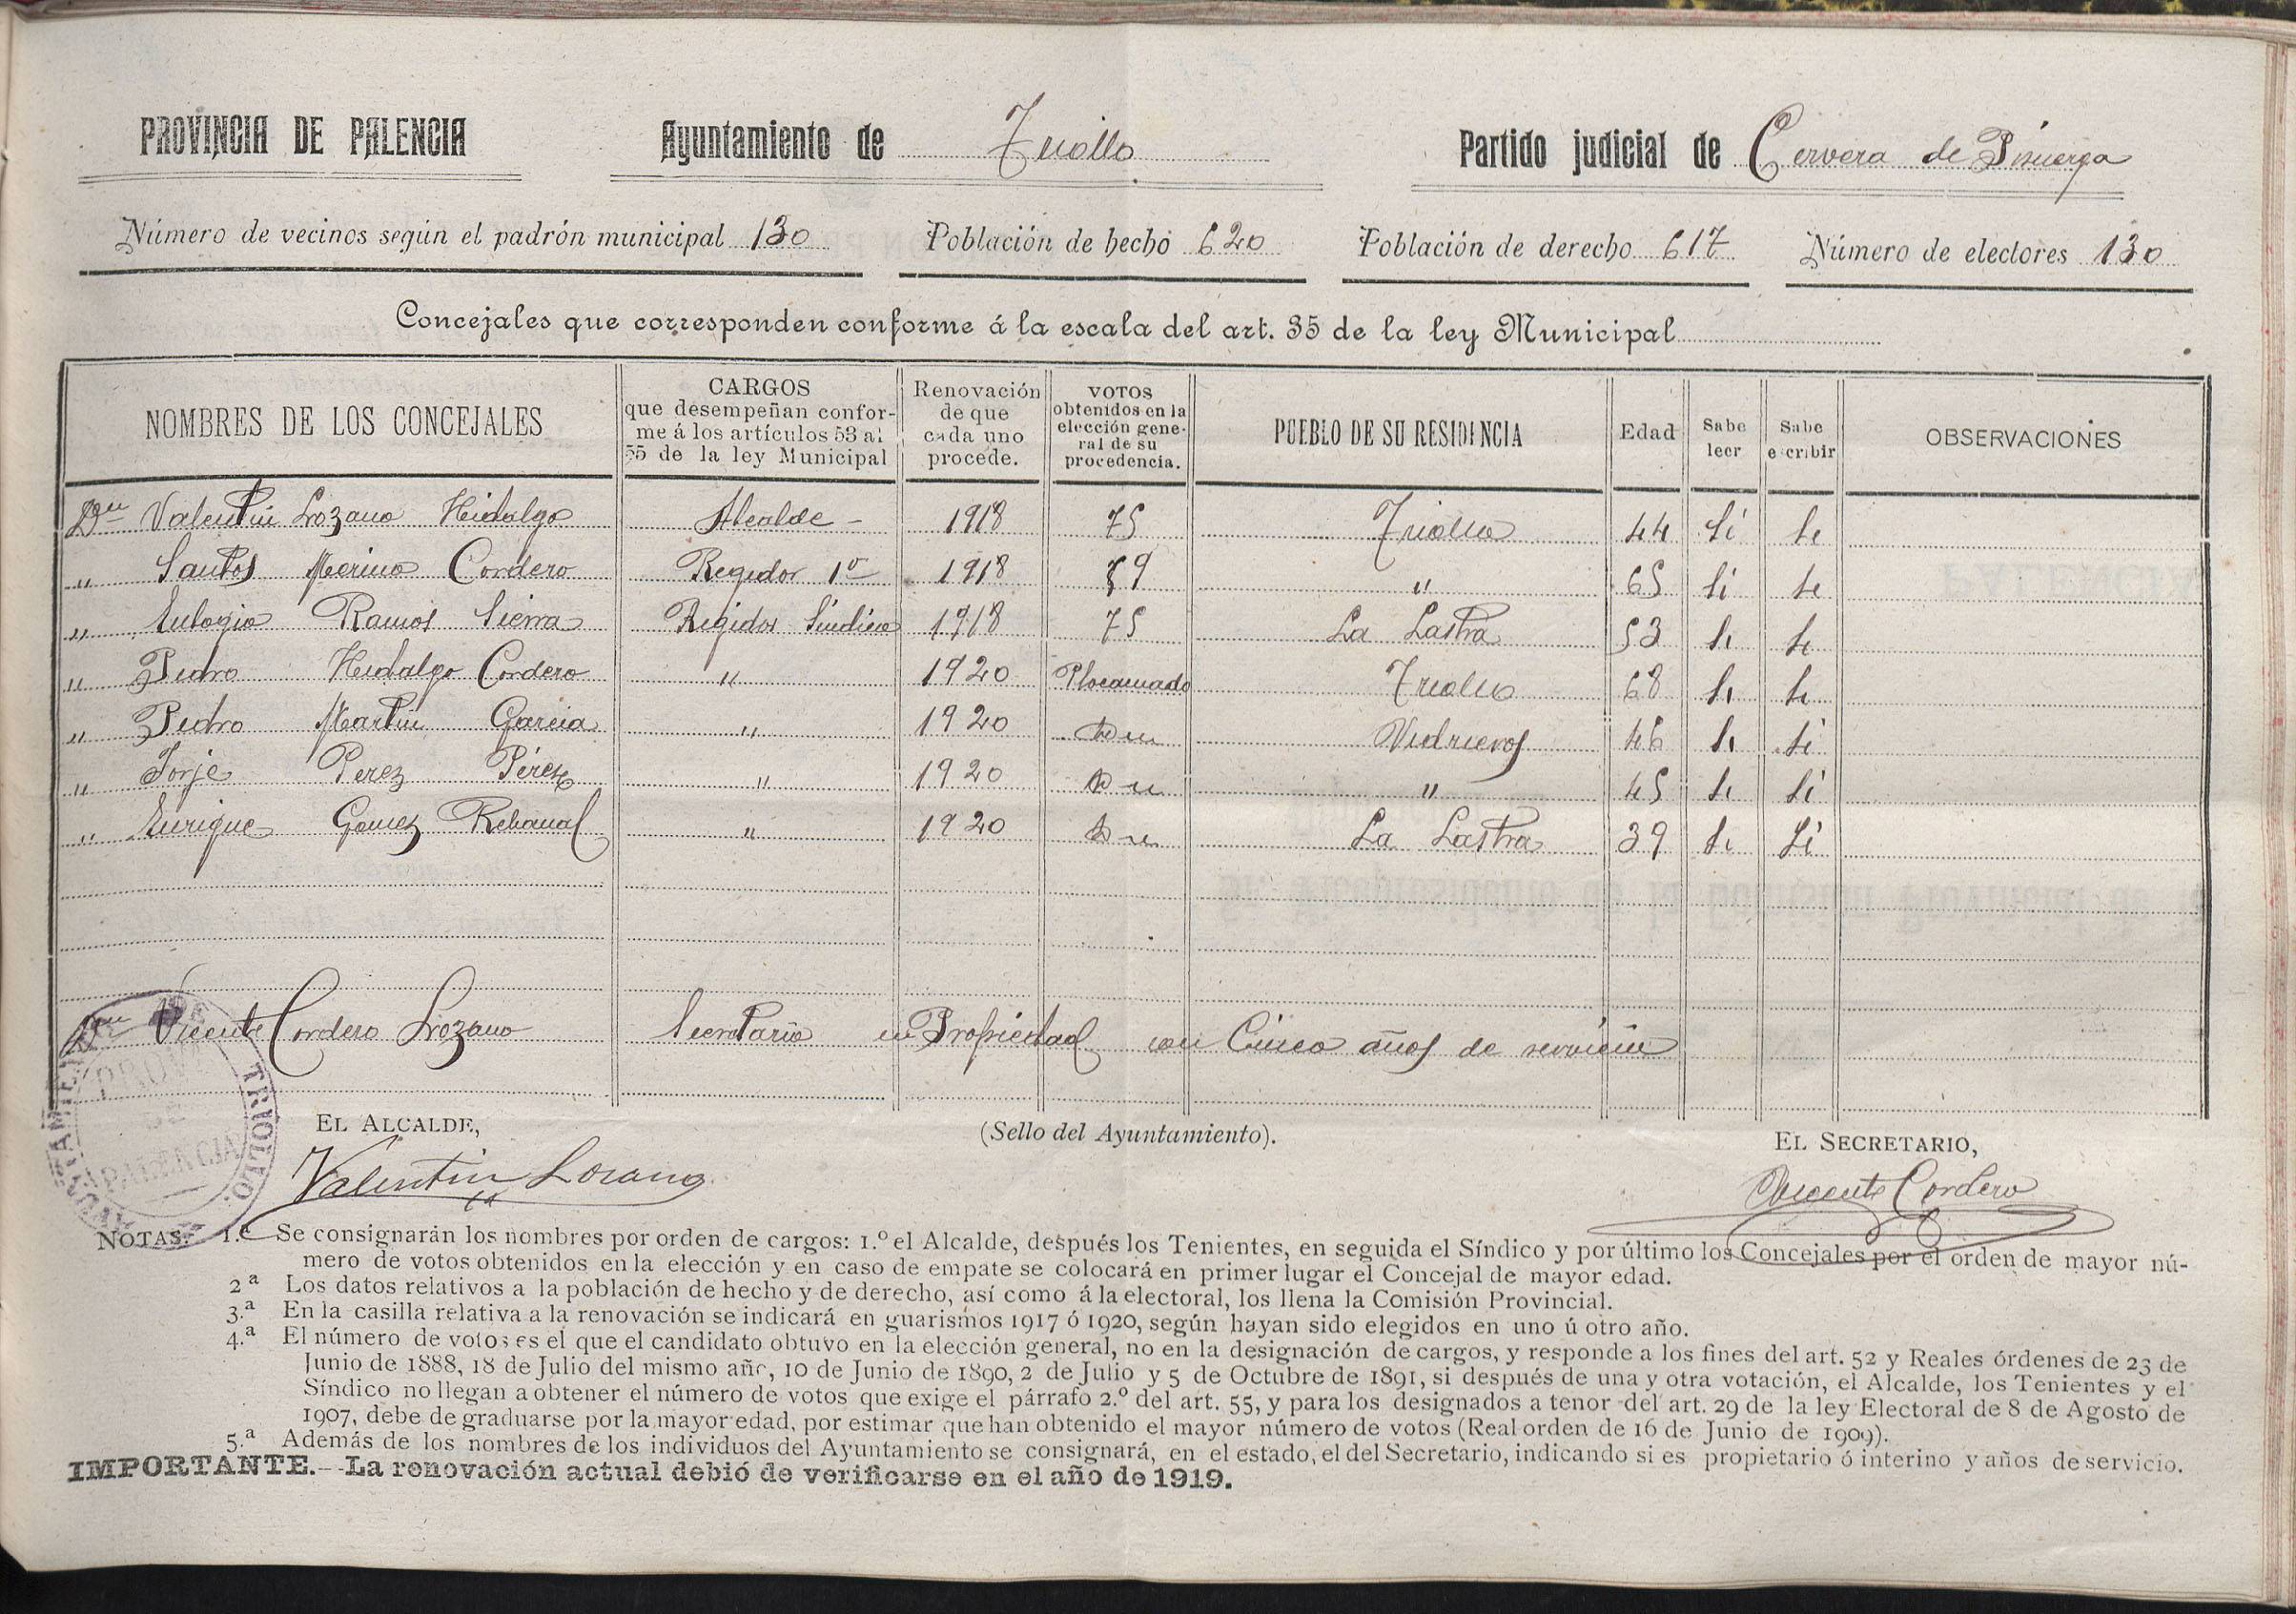 PROVINCIA DE PALENCIA Ayuntamiento de Triollo Partido judicial de Cervera de Pisuerga
Número de vecinos según el padrón municipal 130 Población de hecho 620 Población de derecho 617 Número de electores 130
Concejales que corresponden conforme á la escala del art. 35 de la ley Municipal
NOMBRES DE LOS CONCEJALES CARGOS que desempeñan conforme á los artículos 53 al 55 de la ley Municipal Renovación de que cada uno procede. VOTOS obtenidos en la elección general de su procedencia. PUEBLO DE SU RESIDENCIA Edad Sabe leer Sabe escribir OBSERVACIONES
Don Valentin Lozano Hidalgo Alcalde - 1918 75 Triollo 44 Si Si
" Santos Merino Cordero Regidor 1º 1918 79 " 65 Si Si
" Eulogio Ramos Sierra Regidor Sindico 1918 75 La Lastra 53 Si Si
" Pedro Hidalgo Cordero " 1920 Plocamado Triollo 68 Si Si
" Pedro Martin Garcia " 1920 Vidrieros 46 Si Si
" Jorje Perez Pérez " 1920 " 45 Si Si
" Enrique Gomez Rebanal " 1920 La Lastra 39 Si Si
Don Vicente Cordero Lozano Secretario en Propiedad con Cinco años de servicio
AYUNTAMIENTO DE TRIOLLO.
PROVA
DE
PALENCIA
EL ALCALDE, (Sello del Ayuntamiento). EL SECRETARIO,
Valentin Lozano Vicente Cordero
NOTAS. 1.ª Se consignarán los nombres por orden de cargos: 1.º el Alcalde, después los Tenientes, en seguida el Síndico y por último los Concejales por el orden de mayor nú-
mero de votos obtenidos en la elección y en caso de empate se colocará en primer lugar el Concejal de mayor edad.
2ª Los datos relativos a la población de hecho y de derecho, así como á la electoral, los llena la Comisión Provincial.
3.ª En la casilla relativa a la renovación se indicará en guarismos 1917 ó 1920, según hayan sido elegidos en uno ú otro año.
4.ª El número de votos es el que el candidato obtuvo en la elección general, no en la designación de cargos, y responde a los fines del art. 52 y Reales órdenes de 23 de
Junio de 1888, 18 de Julio del mismo año, 10 de Junio de 1890, 2 de Julio y 5 de Octubre de 1891, si después de una y otra votación, el Alcalde, los Tenientes y el
Síndico no llegan a obtener el número de votos que exige el párrafo 2.º del art. 55, y para los designados a tenor del art. 29 de la ley Electoral de 8 de Agosto de
1907, debe de graduarse por la mayor edad, por estimar que han obtenido el mayor número de votos (Real orden de 16 de Junio de 1909).
5.ª Además de los nombres de los individuos del Ayuntamiento se consignará, en el estado, el del Secretario, indicando si es propietario ó interino y años de servicio.
IMPORTANTE.--La renovación actual debió de verificarse en el año de 1919.